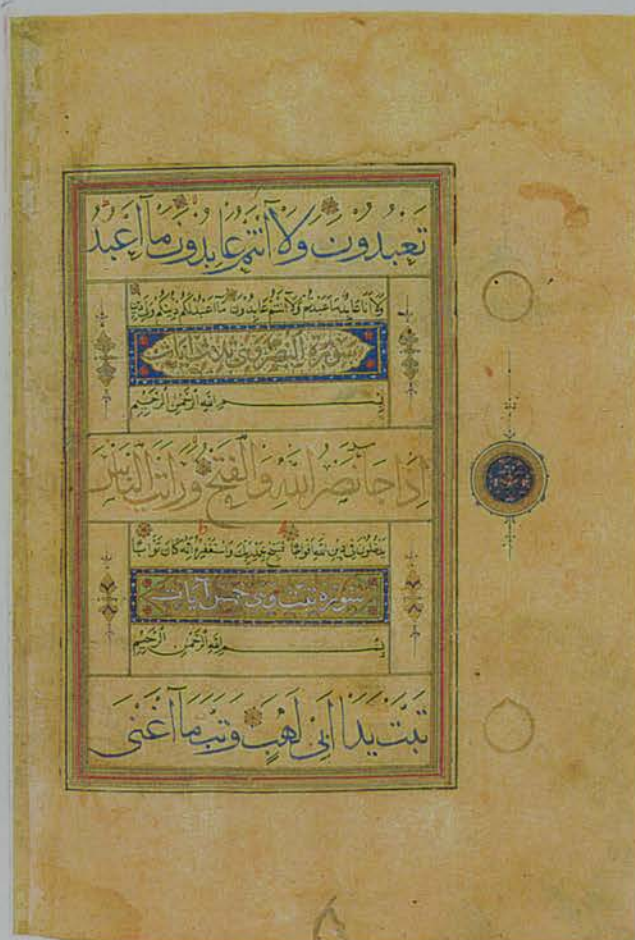 تعبدون ولا أنتم عابدون ما أعبد
ولا أنا عابد ما عبدتم ولا أنتم عابدون ما أعبد لكم دينكم ولي دين
سورة النصر وهي ثلاث آيات
بسم الله الرحمن الرحيم
إذا جا نصر الله والفتح ورأيت الناس
يدخلون في دين الله أفواجا فسبح بحمد ربك واستغفره إنه كان توابا
سورة تبت وهي خمس آيات
بسم الله الرحمن الرحيم
تبت يدا أبي لهب وتب ما أغنى